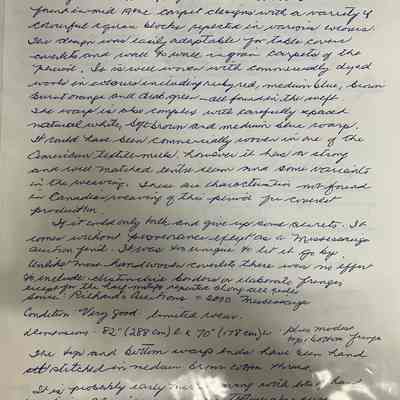 found in mid 19th c carpet designs with a variety of
colourful square blocks repeated in various colours.
The design was easily adaptable for table covers
coverlets and wall to wall in grain carpets of the
period. It is well woven with commercially dyed
wools in colours including ruby red, medium blue, brown
burnt orange and drab green - all found in the weft.
The warp is also complex with carefully spaced
natural white, soft brown and medium blue warp.
It could have been commercially woven in one of the
Canadian textile mills, however it has a strong
and well matched centre seam and some variants
in the weaving. These are characteristics not found
in Canadian weaving of this period for coverlet
production.
If it could only talk and give up some secrets. It
comes without provenance except as a Mississauga
auction find. It was too unique to let it go by.
Unlike most handwoven coverlets there was no effort
to include distinctive borders or elaborate fringes
except for the half motifs repeated along all sides
Source: Richards Auctions - 2020 Mississauga
Condition Very Good limited wear.
dimensions - 82" (288 cm) l x 70" (178 cm) w plus modest
top & bottom fringe
The top and bottom warp ends have been hand
stitched in medium brown cotton thread.
It is probably early